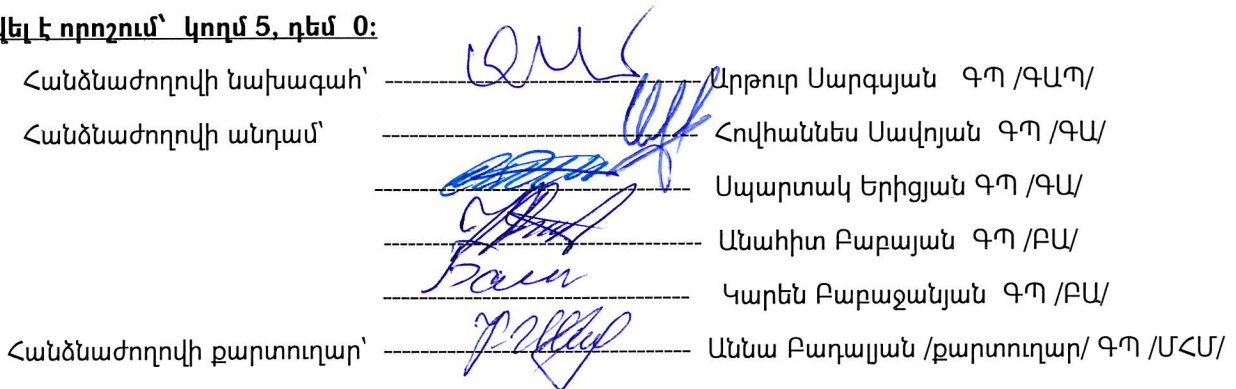 վել է որոշում՝ կողմ 5, դեմ 0:
Հանձնաժողովի նախագահ՝ Արթուր Սարգսյան ԳՊ /ԳԱՊ/
Հանձնաժողովի անդամ՝ Հովհաննես Սավոյան ԳՊ /ԳԱ/
Սպարտակ Երիցյան ԳՊ /ԳԱ/
Անահիտ Բաբայան ԳՊ /ԲԱ/
Կարեն Բաբաջանյան ԳՊ /ԲԱ/
Հանձնաժողովի քարտուղար՝ Աննա Բադալյան /քարտուղար/ ԳՊ /ՄՀՄ/